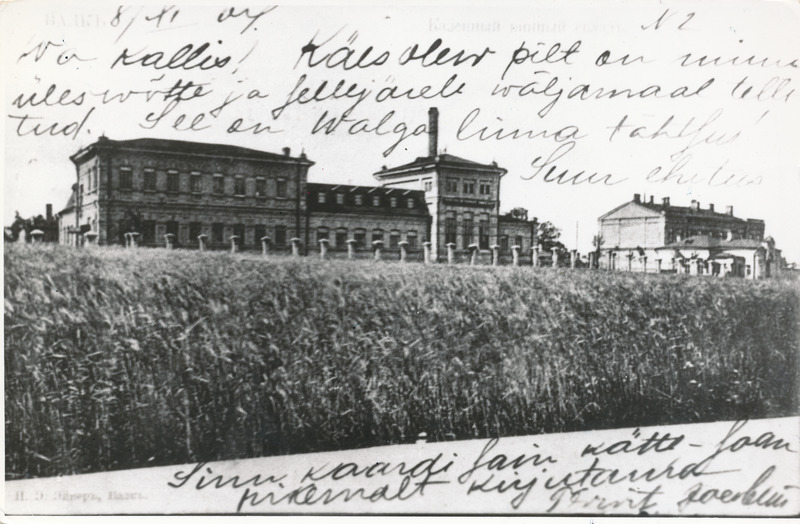 ВАЛКЪ 8/XI 04 Казенный винный складъ. N 2
Wo kallis! Käesolew pilt on minu
üleswõtte ja selle järele wäljamaal telli
tud. See on Walga linna tähtjus!
Suur ehetus
Sinu kaardi sain kätte - Saan
pikemalt kirjutama
П. Э. Эйверъ, Валкъ.